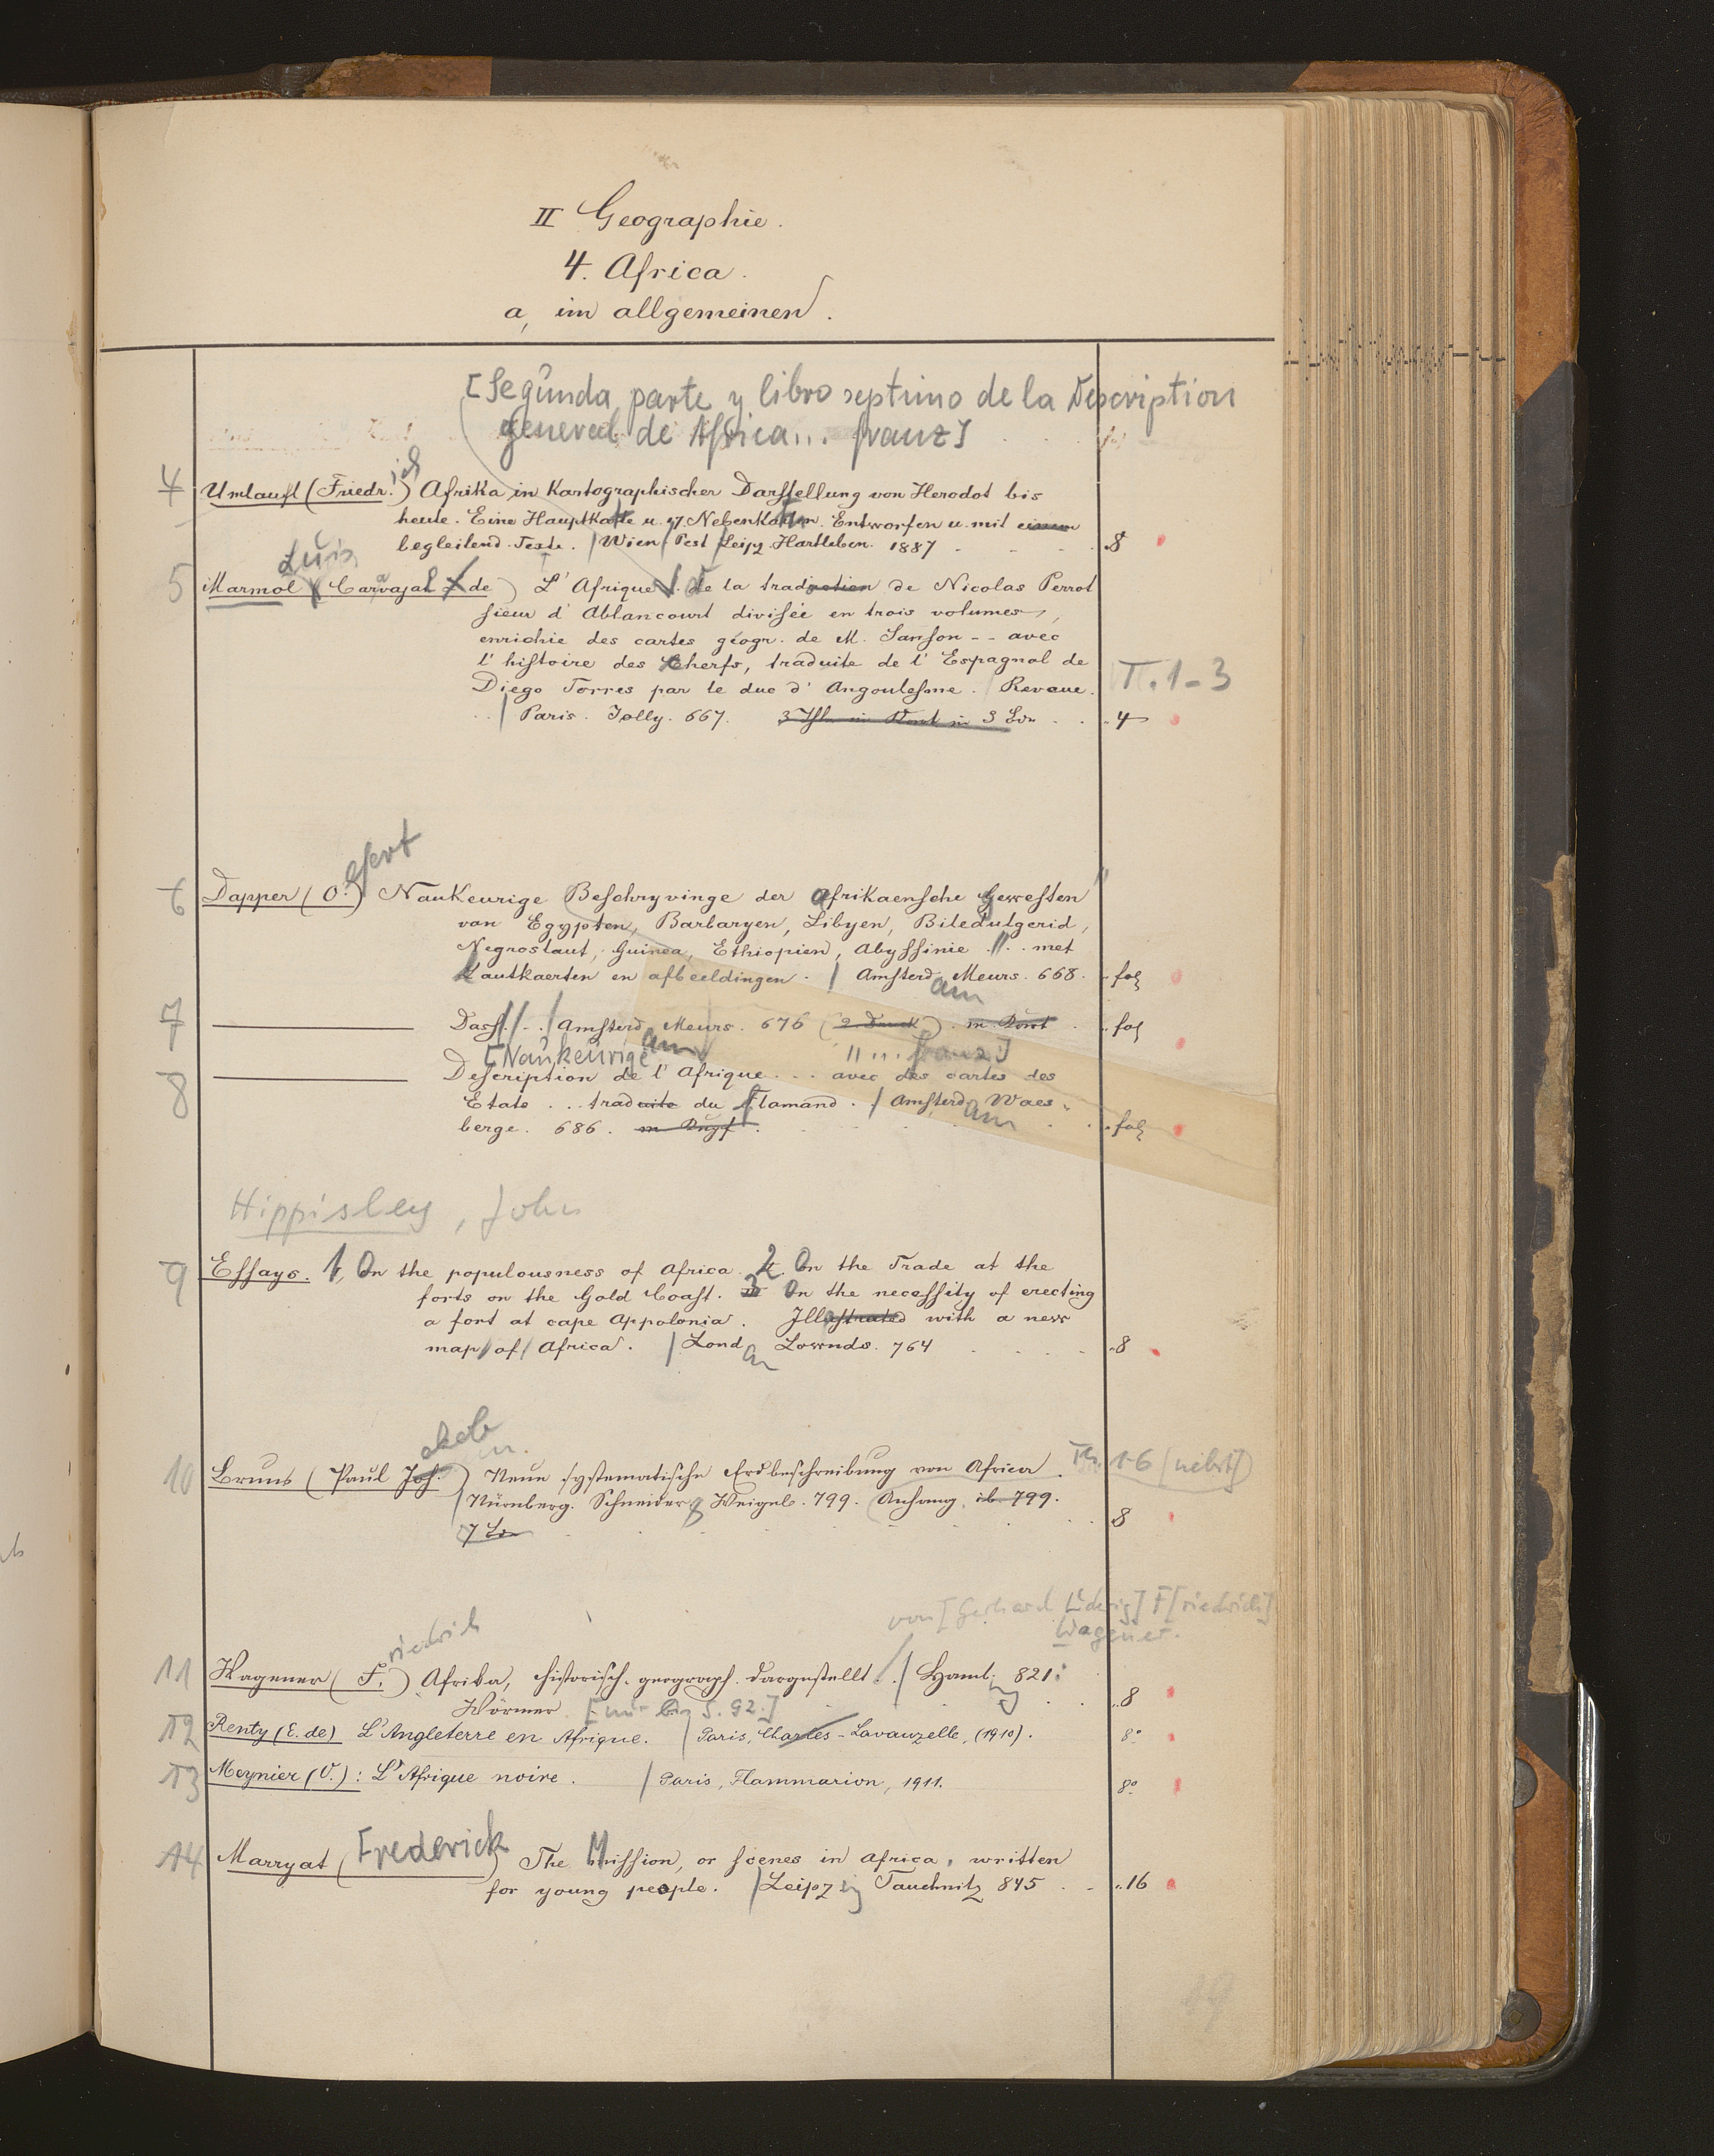 II Geographie.
4. Africa.
a, im allgemeinen.
[Segunda parte y libro septimo de la Description
general de Africa... franz]
4 Umlauft (Friedr.ich) Afrika in Kartographischer Darstellung von Herodot bis
heute. Eine Hauptkarte u. 17 Nebenkarten. Entworfen u. mit einem
begleitend. Texte. / Wien / Pest / Leipz. Hartleben. 1887 8
Luis
5 Marmol Carvajal de) L'Afrique de la traduction de Nicolas Perrot
sieur d'Ablancourt divisée en trois volumes,
enrichie des cartes géogr. de M. Sanson -- avec
l'histoire des Cherifs, traduite de l'Espagnol de
Diego Torres par le duc d'Angoulesme. / Reveue. T. 1-3
/ Paris. Jolly. 667. 4
6 Dapper (O.) Naukeurige Beschryvinge der Afrikaensche Gewesten
van Egypten, Barbaryen, Libyen, Biledulgerid,
Negroslant, Guinea, Ethiopien, Abyssinie ... met
Lantkaerten en afbeeldingen. / Amsterdam Meurs. 668. fol
7 Dass. .. / Amsterdam Meurs. 676 (2. Druck) fol
[Naukeurige ... franz]
8 Description de l'Afrique ... avec des cartes des
Etats ... traduite du Flamand. / Amsterdam Waes-
berge. 686. fol
Hippisley, John
9 Essays. 1, On the populousness of Africa. 2. On the Trade at the
forts on the Gold Coast. 3 On the necessity of erecting
a fort at cape Appolonia. Illustrated with a new
map of Africa. / London Lownds. 764 8
10 Bruns (Paul Jakob) Neue systematische Erdbeschreibung von Africa. Th. 1-6 (nebst)
/ Nürnberg. Schneider & Weigel. 799. Anhang. ib. 799.
7 8
von [Gerhard Ludwig] F[riedrich]
Wagener.
11 Wagener (Friedrich) Afrika, historisch-geograph. dargestellt. / Hamb. 821.
Wörmer. [nur bis S. 92.] 8
12 Renty (E. de) L'Angleterre en Afrique. / Paris, Charles-Lavauzelle, (1910). 8°
13 Meynier (O.): L'Afrique noire. / Paris, Flammarion, 1911. 8°
14 Marryat (Frederick) The Mission, or scenes in Africa, written
for young people. / Leipzig Tauchnitz 845 16
19